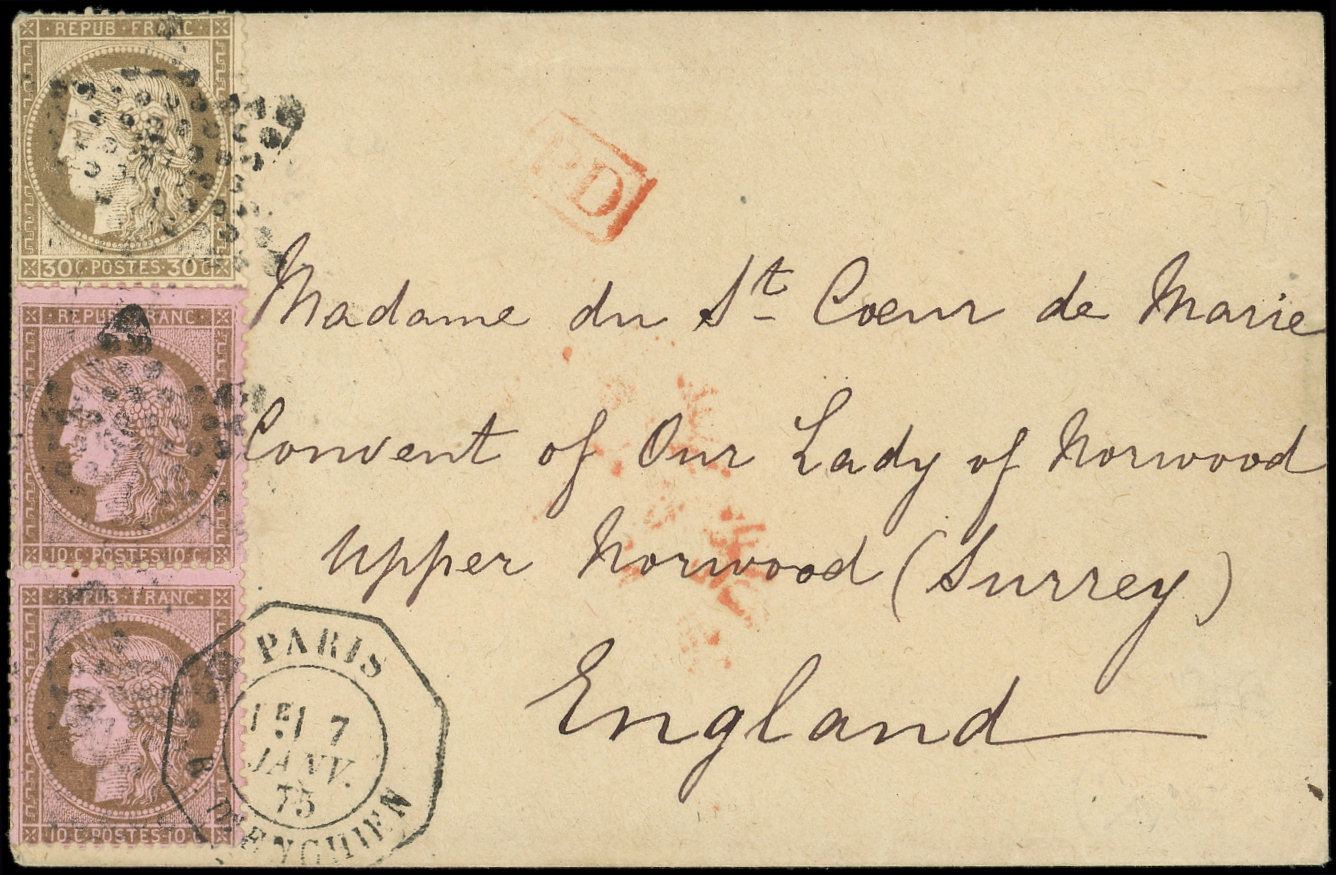 REPUB · FRANC ·
30 C · POSTES · 30 C
PD
Madame du St Cœur de Marie
REPUB · FRANC ·
Convent of Our Lady of Norwood
10 · C · POSTES · 10 · C
Upper Norwood (Surrey)
REPUB · FRANC ·
England
PARIS
7
JANV.
75
R. D'ENGHIEN
10 · C · POSTES · 10 · C